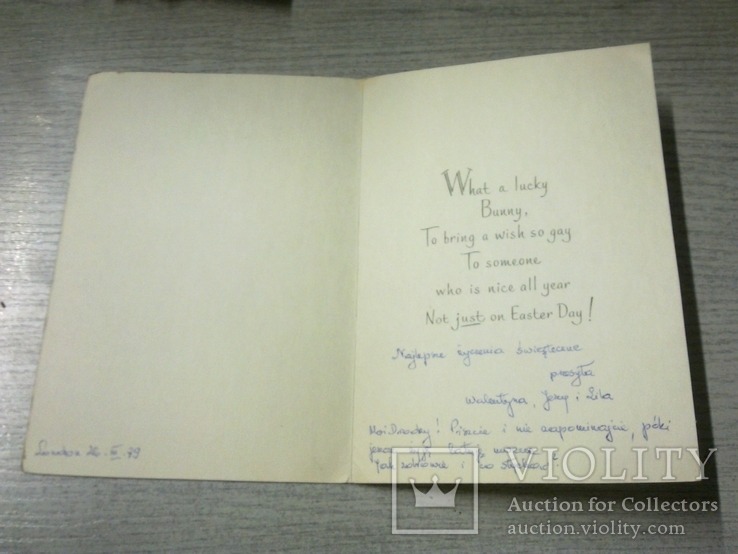 What a lucky
Bunny,
To bring a wish so gay
To someone
who is nice all year
Not just on Easter Day!
Najlepsze życzenia świąteczne
przesyła
Walentyna, Jerzy i Lila
! Piszcie i nie zapominajcie, póki
Jak zdrowie i co słychać?
London 26. III. 79
VIOLITY
Auction for Collectors
auction.violity.com